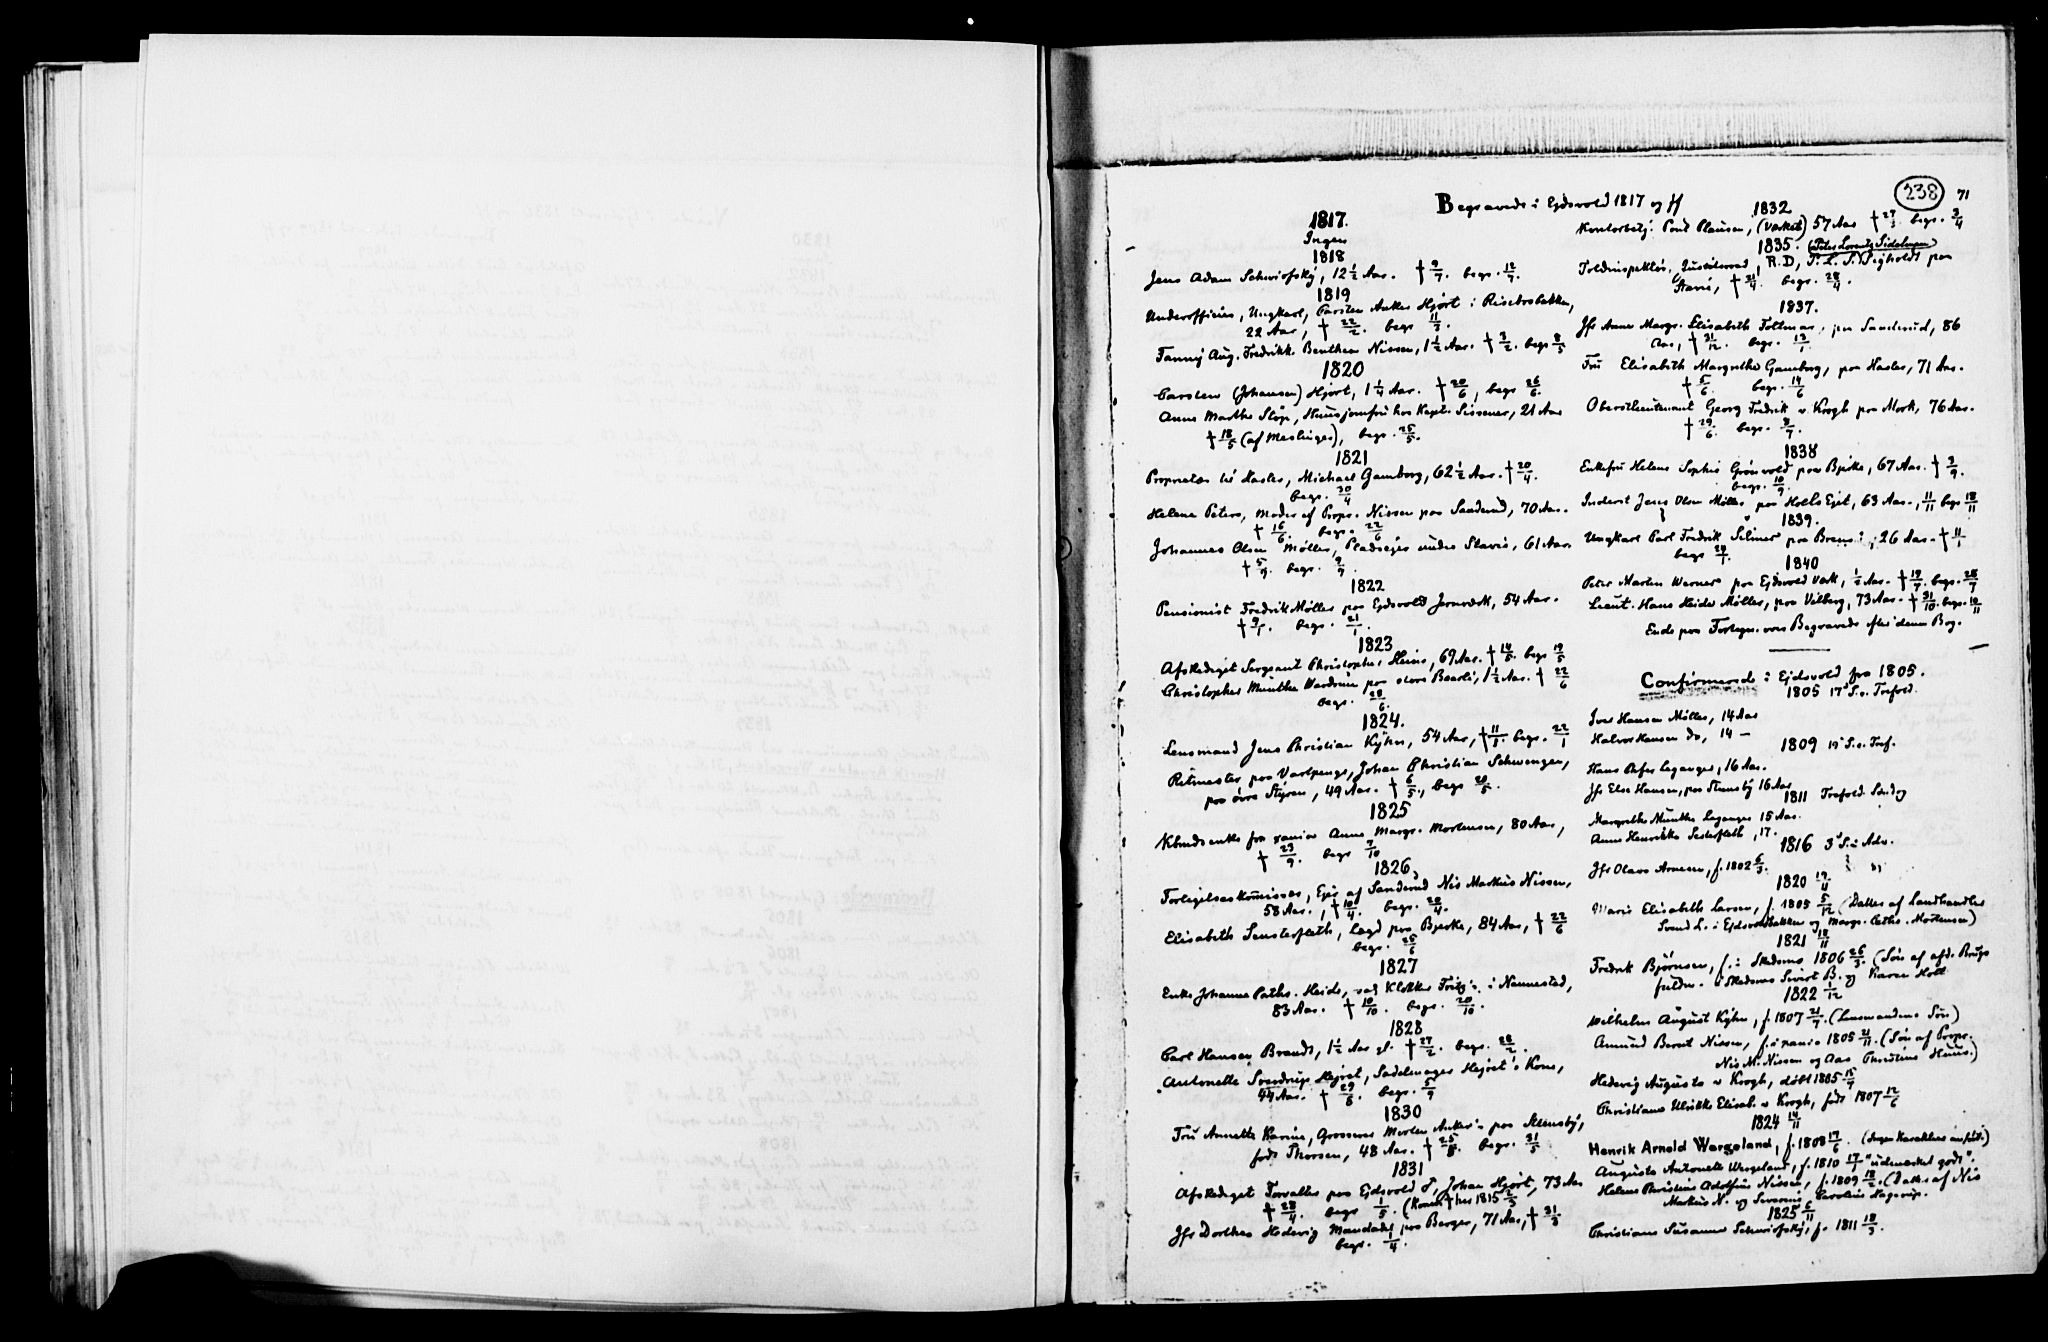 238
71
Begravede i Ejdsvold 1817 og ff
1817.
Ingen
1818
Jens Adam Schwiofsky, 12 1/2 Aar. † 9/7. begr. 12/7.
1819
Underofficier, Ungkarl, Carsten Anker Hjort i Risebrobakken,
22 Aar, † 22/2. begr 11/3.
Fanny Aug. Fredrikke Benthea Nissen, 1 1/2 Aar. † 3/2. begr 8/5
1820
Carsten (Johansen) Hjort, 1 1/4 Aar. † 20/6, begr 26/6.
Anne Marthe Stöp, Huusjomfru hos Kapt. Sissener, 21 Aar
† 18/5 (af Meslinger), begr. 25/5.
1821
Proprietær til Hasler, Michael Gamborg, 62 1/2 Aar. † 20/4.
begr. 30/4
Helene Peters, Moder af Propr. Nissen paa Sanderud, 70 Aar.
† 16/6. begr. 22/6
Johannes Olsen Møller, Pladsejer under Stavis, 61 Aar.
† 5/9. begr. 9/9.
1822
Pensionist Fredrik Møller paa Ejdsvold Jernværk, 54 Aar.
† 9/1. begr. 21/1.
1823
Afskediget Sergeant Christopher Heins, 69 Aar. † 14/5. begr 19/5
Christopher Münthe Vardrum paa store Baarli, 1 1/2 Aar. † 22/6
begr. 28/6.
1824.
Lensmand Jens Christian Kyhn, 54 Aar, † 11/1. begr. 22/1
Ritmester paa Vartpenge, Johan Christian Schwenger,
paa övre Styren, 49 Aar. † 6/5., begr 20/5.
1825
Kbmdsenke fra Xania Anne Margr. Mortensen, 80 Aar,
† 23/9. begr 7/10
1826
Forligelseskomissær, Ejer af Sanderud Nis Markus Nissen,
58 Aar., † 10/4. begr. 20/4.
Elisabeth Sensterfleth, Lagd paa Bjerke, 84 Aar, † 22/6
begr. 25/6
1827
Enke Johanne Cathr. Heide, ved Klokker Fritz i Nannestad,
83 Aar. † 10/10. begr. 20/10.
1828
Carl Hansen Brandt, 1 1/2 Aar gl. † 27/2. begr. 28/2.
Antonette Svendrup Hejort, Sadelmager Hejort's Kone,
44 Aar. † 29/8. begr. 5/9
1830
Fru Annette Karine, Grosserer Morten Anker's paa Stensby,
født Thorsen, 48 Aar. † 25/5. begr. 31/5
1831
Afskediget Forvalter paa Ejdsvold, Johan Hjort, 73 Aar
† 28/4. begr 1/5. (Konen † her 1815 2/5
Jfr Dorthea Hedevig Mandahl paa Berger, 71 Aar, † 31/3
begr. 1/4.
1832
Kontorbetj. Poul Clausen, (Værket) 57 Aar † 27/3. begr. 3/4
1835. (Peter Lorentz Sidelmann)
Toldinspektör, Justitsraad, R.D, P. L. S. Nejholdt paa
Stavis, † 21/4. begr. 28/4.
1837.
Jfr Anne Margr. Elisabeth Tollmar, paa Sanderud, 86
Aar, † 31/12. begr. 13/1.
Fru Elisabeth Margrethe Gamborg, paa Hasler, 71 Aar.
† 5/6. begr. 14/6
Oberstlieutenant Georg Fredrik v. Krogh paa Mork, 76 Aar.
† 29/6. begr. 8/7.
1838
Enkefru Helene Sophie Grönvold paa Bjerke, 67 Aar. † 3/9.
begr. 10/9.
Inderst Jens Olsen Møller paa Hols Ejet, 63 Aar., 11/11 begr 18/11
1839.
Ungkarl Carl Fredrik Selmer paa 26 Aar. † 11/1
begr 20/1.
1840
Peter Marten Werner paa Ejdsvold Værk, 1/2 Aar. † 19/7. begr. 25/7
Lieut. Hans Heide Møller, paa Vilberg, 73 Aar. † 31/10. begr. 10/11
Ende paa Fortegn. over Begravede efter denne Bog.
Confirmerede i Ejdsvold fra 1805.
1805 17' S. e. Trefold.
Iver Hansen Møller, 14 Aar
Halvor Hansen do, 14 —
1809 19' S. e. Tref.
Hans Peter Leganger, 16 Aar.
Jfr Else Hansen, paa Stensby 16 Aar
1811 Trefold. Söndag
Margrethe Munthe Leganger 15 Aar.
Anne Henrikke Sesterfleth, 17.
1816 3' S. i Adv.
Jfr Olava Arnesen, f. 1802 6/3.
1820 19/11
Maria Elisabeth Larsen, f. 1805 5/12 (Datter af Landhandler
Svend L. i Ejdsvoldbakken og Margr. Cathr. Mortensen)
1821 18/11
Fredrik Björnsen, f. i Skedsmo 1806 26/3. (Sön af afd. Brugs
fuldm. i Skedsmo Sivert B. og Karen Holt
1822 1/12
Wilhelm August Kyhn, f. 1807 21/7. (Lensmandens Sön)
Amund Bernt Nissen, f. i Xania 1805 21/11. (Sön af Propr.
Nis M. Nissen og Christine Huus.)
Hedevig Augusta v Krogh, döbt 1805 15/9
Christiane Ulrikke Elisab. v Krogh, født 1807 12/6
1824 14/11
Henrik Arnold Wergeland, f. 1808 17/6. (Ingen Karakter anfört.)
Augusta Antonette Wergeland, f. 1810 17/1 "udmærket godt".
Helene Christine Adolfine Nissen, f. 1809 18/2. (Datter af Nis
Markus N. og Severine Caroline Hagerup.
1825 6/11
Christiane Susanne Schwiofsky, f. 1811 18/3.